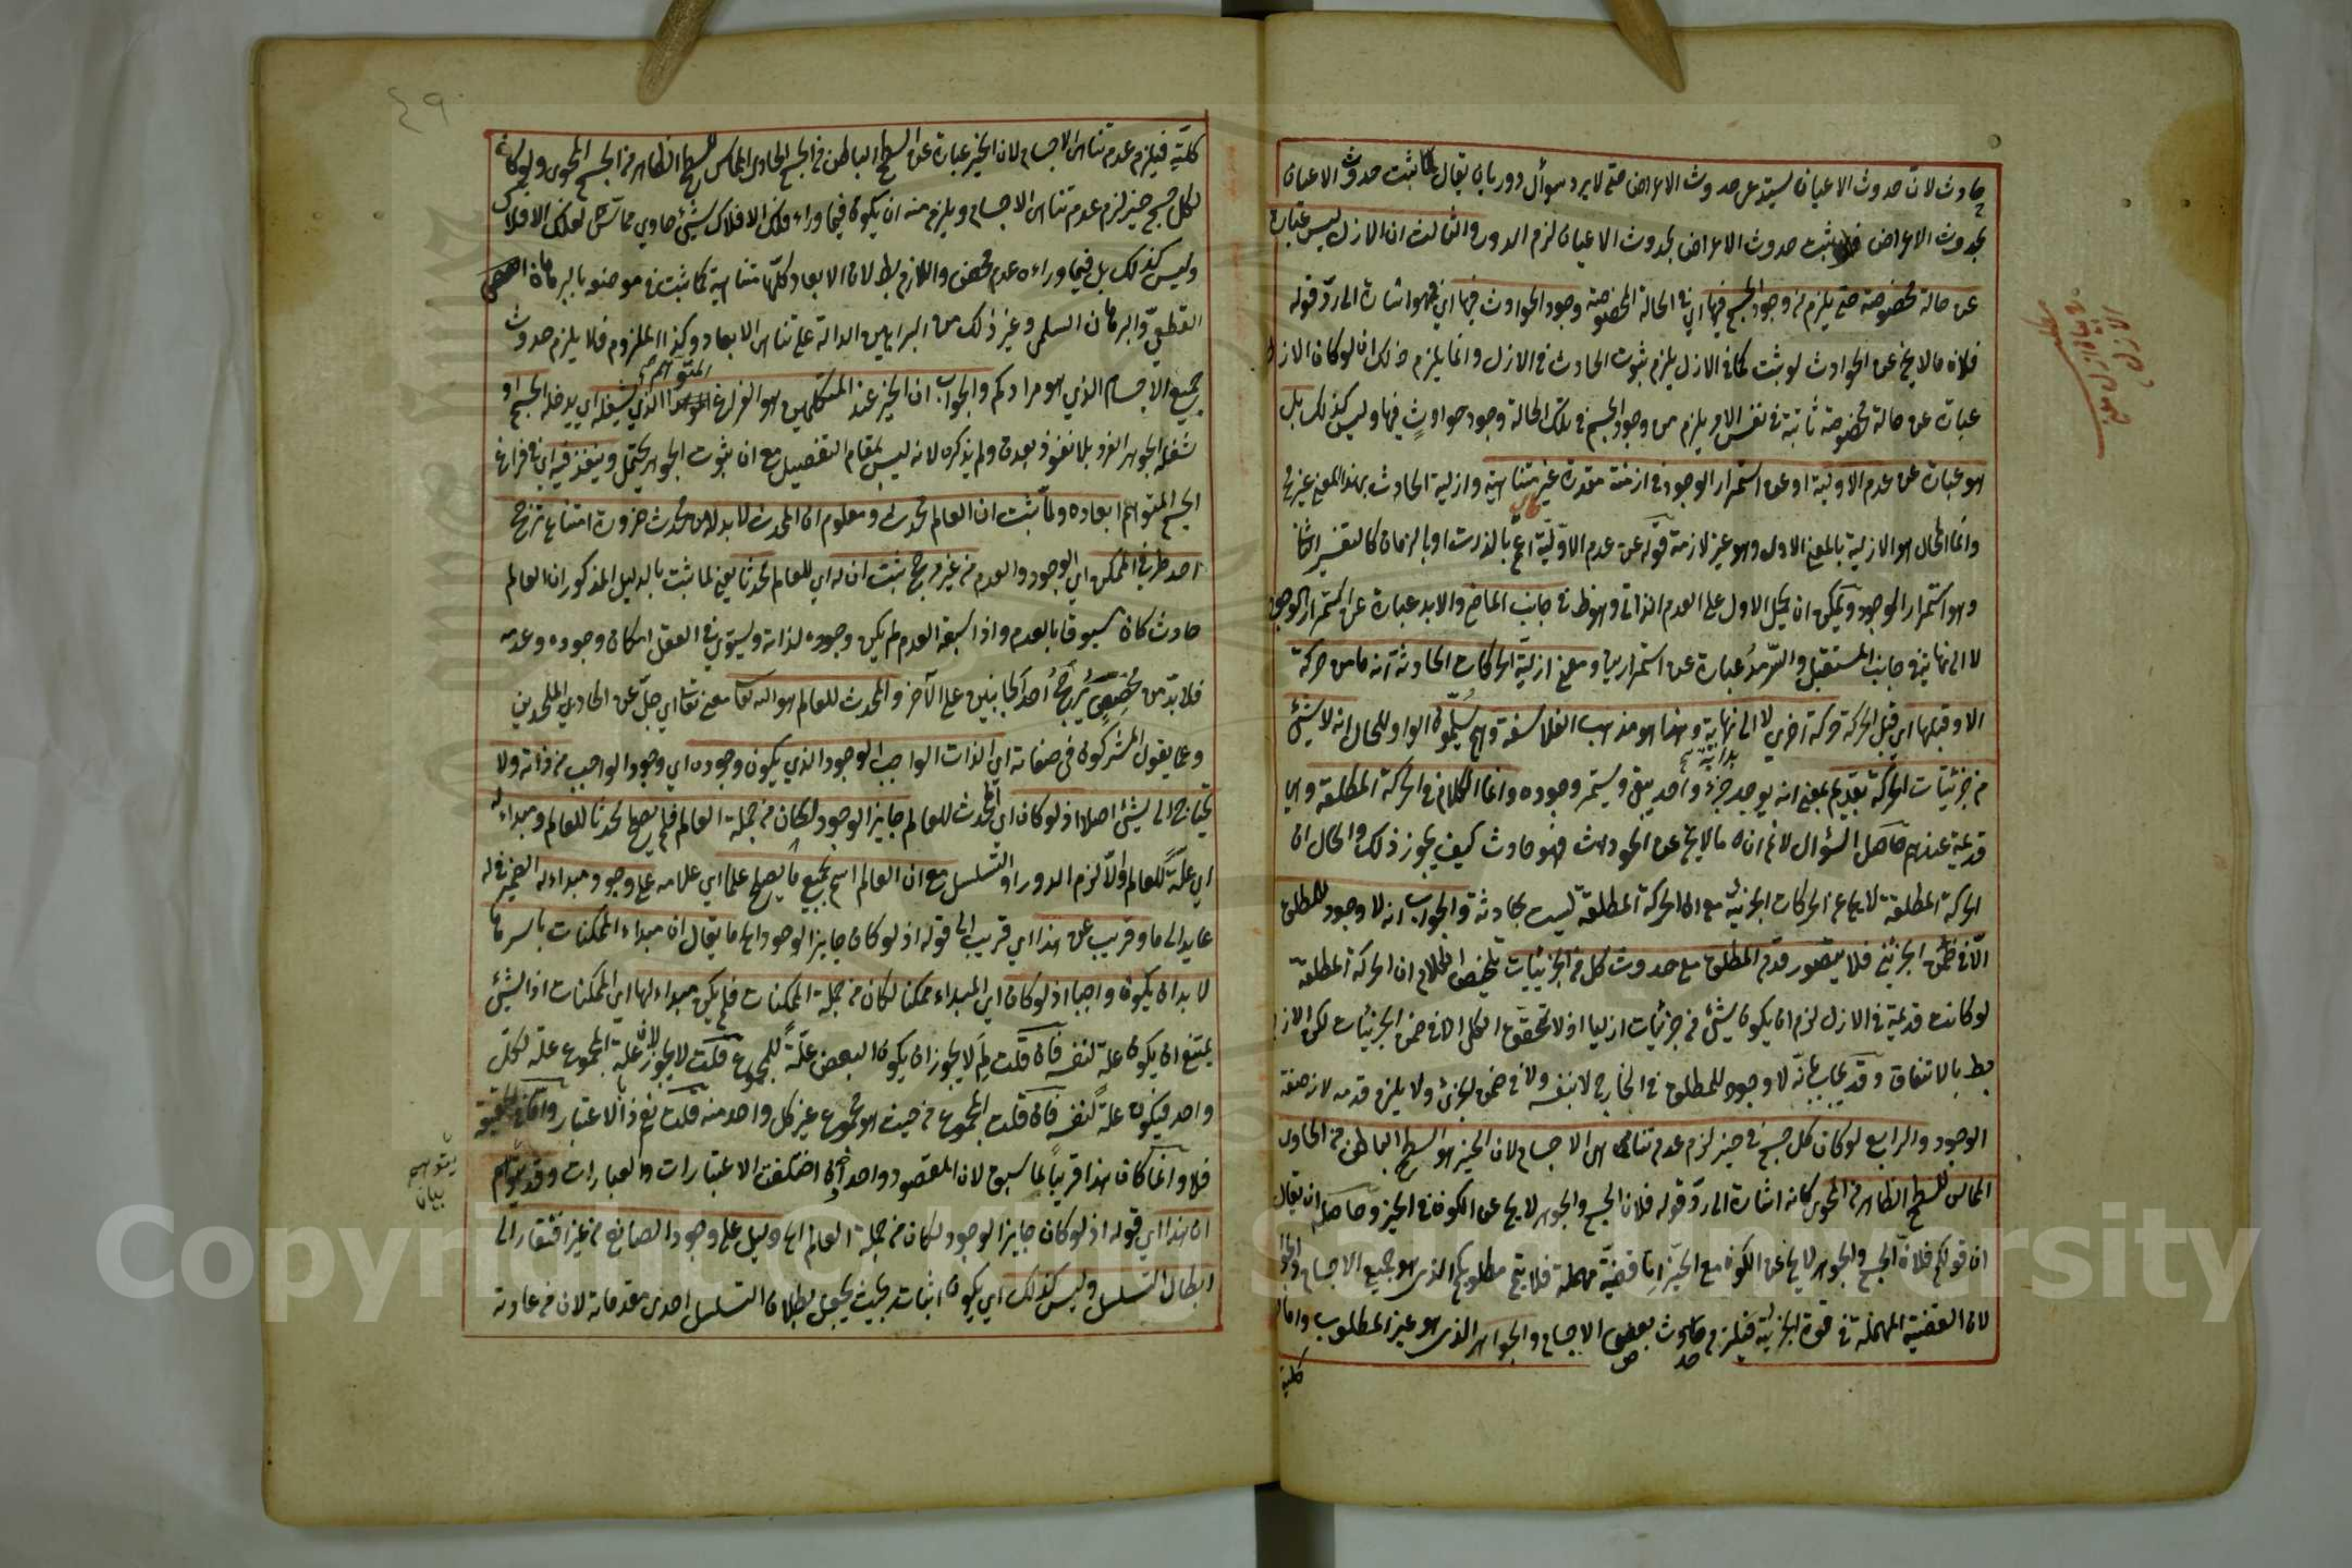 حادث لان حدوث الاعيان يستدعى حدوث الاعراض حتى لا يرد سؤال دور بان يقال لما ثبت حدوث الاعيان
بحدوث الاعراض فلو ثبت حدوث الاعراض بحدوث الاعيان لزم الدور والثالث ان الازل ليس عبارة
عن حالة مخصوصة حتى يلزم من وجود الجسم فيها اي في الحالة المخصوصة وجود الحوادث فيها اي فهو اشارة الى رد قوله
فلان ما لا يخ عن الحوادث لو ثبت كما في الازل يلزم ثبوت الحادث في الازل وانما يلزم ذلك ان لو كان الازل
عبارة عن حالة مخصوصة ثابتة في نفس الامر يلزم من وجود الجسم في تلك الحالة وجود حوادث فيها وليس كذلك بل
هو عبارة عن عدم الاولية او عن استمرار الوجود في ازمنة مقدرة غير متناهية وازلية الحادث بهذا المعنى غير مح
وانما المحال هو الازلية بالمعنى الاول وهو غير لازمة قوله عن عدم الاولية اعم بالذات او بالزمان كالتفسير الثاني
وهو استمرار الوجود ويمكن ان يحمل الاول على العدم الذاتى وهو ظ في جانب الماضى والابد عبارة عن استمرار الوجود
لا الى نهاية في جانب المستقبل والسرمد عبارة عن استمرار بينها ومعنى ازلية الحركات الحادثة انه ما من حركة
الا وقبلها اي قبل الحركة حركة اخرى لا الى نهاية وهذا هو مذهب الفلاسفة وهم يسلمون الواو للحال انه لا شئ
بداية صح
من جزئيات الحركة بقديم بمعنى انه يوجد جزء واحد يبقى ويستمر وجوده وانما الكلام في الحركة المطلقة وهي
قديمة عندهم حاصل السؤال لا نم ان ما لا يخ عن الحوادث فهو حادث كيف يجوز ذلك والحال ان
الحركة المطلقة لا يخ عن الحركات الجزئية مع ان الحركة المطلقة ليست بحادثة والجواب انه لا وجود للمطلق
الا في ضمن الجزئى فلا يتصور قدم المطلق مع حدوث كل من الجزئيات تلخيص الكلام ان الحركة المطلقة
لو كانت قديمة في الازل لزم ان يكون شئ من جزئيات ازليا اذ لا تحقق الكلى الا في ضمن الجزئيات لكن اللازم
بط بالاتفاق وقد يجاب بانه لا وجود للمطلق في الخارج لا بنفسه ولا في ضمن الجزئى ولا يلزم قدمه لانه صفة
الوجود والرابع لو كان كل جسم في حيز لزم عدم تناهى الاجسام لان الحيز هو السطح الباطن من الحاوى
المماس للسطح الظاهر من المحوى كانه اشارة الى رد قوله فلان الجسم والجوهر لا يخ عن الكون في الحيز وحاصله ان يقال
ان قولكم فلان الجسم والجوهر لا يخ عن الكون مع الحيز اما قضية مهملة فلا ينتج مطلوبكم الذى هو جميع الاجسام والجواهر
لان القضية المهملة في قوة الجزئية فيلزم حدوث بعض الاجسام والجواهر الذى هو غير المطلوب واما
كلية
٤٩
كلية فيلزم عدم تناهى الاجسام لان الحيز عبارة عن السطح الباطن من الجسم الحاوى المماس للسطح الظاهر من الجسم المحوى ولو كان
لكل جسم حيز لزم عدم تناهى الاجسام ويلزم منه ان يكون فيما وراء فلك الافلاك شئ حاوي مماس لفلك الافلاك
وليس كذلك بل فيما وراءه عدم محض واللازم بط لان الابعاد كلها متناهية كما ثبت في موضعه بالبرهان
القطعى والبرهان السلمى وغير ذلك من البراهين الدالة على تناهى الابعاد وكذا الملزوم فلا يلزم حدوث
جميع الاجسام الذي هو مرادكم والجواب ان الحيز عند المتكلمين هو الفراغ المتوهم الذي يشغله اي يدخله الجسم او
شغله الجوهر الفرد بلا نفوذ بعده ولم يذكره لانه ليس بمقام التفصيل مع ان ثبوت الجوهر يحتمل وينفذ فيه اي في فراغ
الجسم المتوهم ابعاده ولما ثبت ان العالم محدث ومعلوم ان المحدث لا بد له من محدث ضرورة امتناع ترجح
احد طرفي الممكن اي الوجود والعدم من غير مرجح ثبت ان له اي للعالم محدثا يعني لما ثبت بالدليل المذكور ان العالم
حادث كان مسبوقا بالعدم واذا سبقه العدم لم يكن وجوده لذاته ويستوي في العقل امكان وجوده وعدمه
فلا بد من مخصص يرجح احد الجانبين على الآخر والمحدث للعالم هو الله تعالى معنى تعالى اي جل عن الحادي الملحدين
وعما يقول المشركون في صفاته اي الذات الواجب الوجود الذي يكون وجوده اي وجود الواجب من ذاته ولا
يحتاج الى شئ اصلا اذ لو كان اي المحدث للعالم جايز الوجود لكان من جملة العالم فلم يصلح محدثا للعالم ومبداء له
اي علة للعالم والا لزم الدور او التسلسل مع ان العالم اسم بجميع ما يصلح علما اي علامه على وجود مبداء له الضمير في له
عايد الى ما وقريب من هذا اي قريب الى قوله اذ لو كان جايز الوجود الخ ما يقال ان مبداء الممكنات باسرها
لا بد ان يكون واجبا اذ لو كان اي المبداء ممكنا لكان من جملة الممكنات فلم يكن مبداء لها اي الممكنات اذ الشئ
يمتنع ان يكون علة لنفسه فان قلت لم لا يجوز ان يكون البعض علة للمجموع قلت لا يجوز لان علة المجموع علة لكل
واحد فيكون علة لنفسه فان قلت المجموع من حيث هو مجموع غير كل واحد منه قلت نعم بالاعتبار واما في الحقيقة
فلا وانما كان هذا قريبا لما سبق لان المقصود واحد وان اختلفت الاعتبارات والعبارات وقد يتوهم
ان هذا اي قوله اذ لو كان جايز الوجود لكان من جملة العالم الخ دليل على وجود الصانع من غير افتقار الى
ابطال التسلسل وليس كذلك اي يكون اثباته بحيث يجعل بطلان التسلسل احدى مقدماته لان من عادته
يتوهم
بيان
Copyright © King Saud University